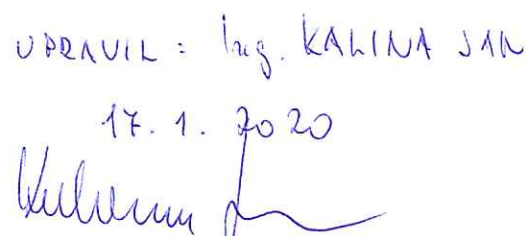 UPRAVIL: Ing. KALINA JAN
17. 1. 2020